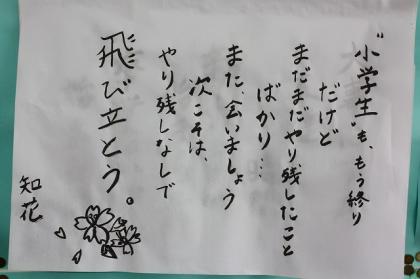 "小学生"も、もう終り
だけど
まだまだやり残したこと
ばかり…
また、会いましょう
次こそは、
やり残しなしで
飛び立とう。
知花